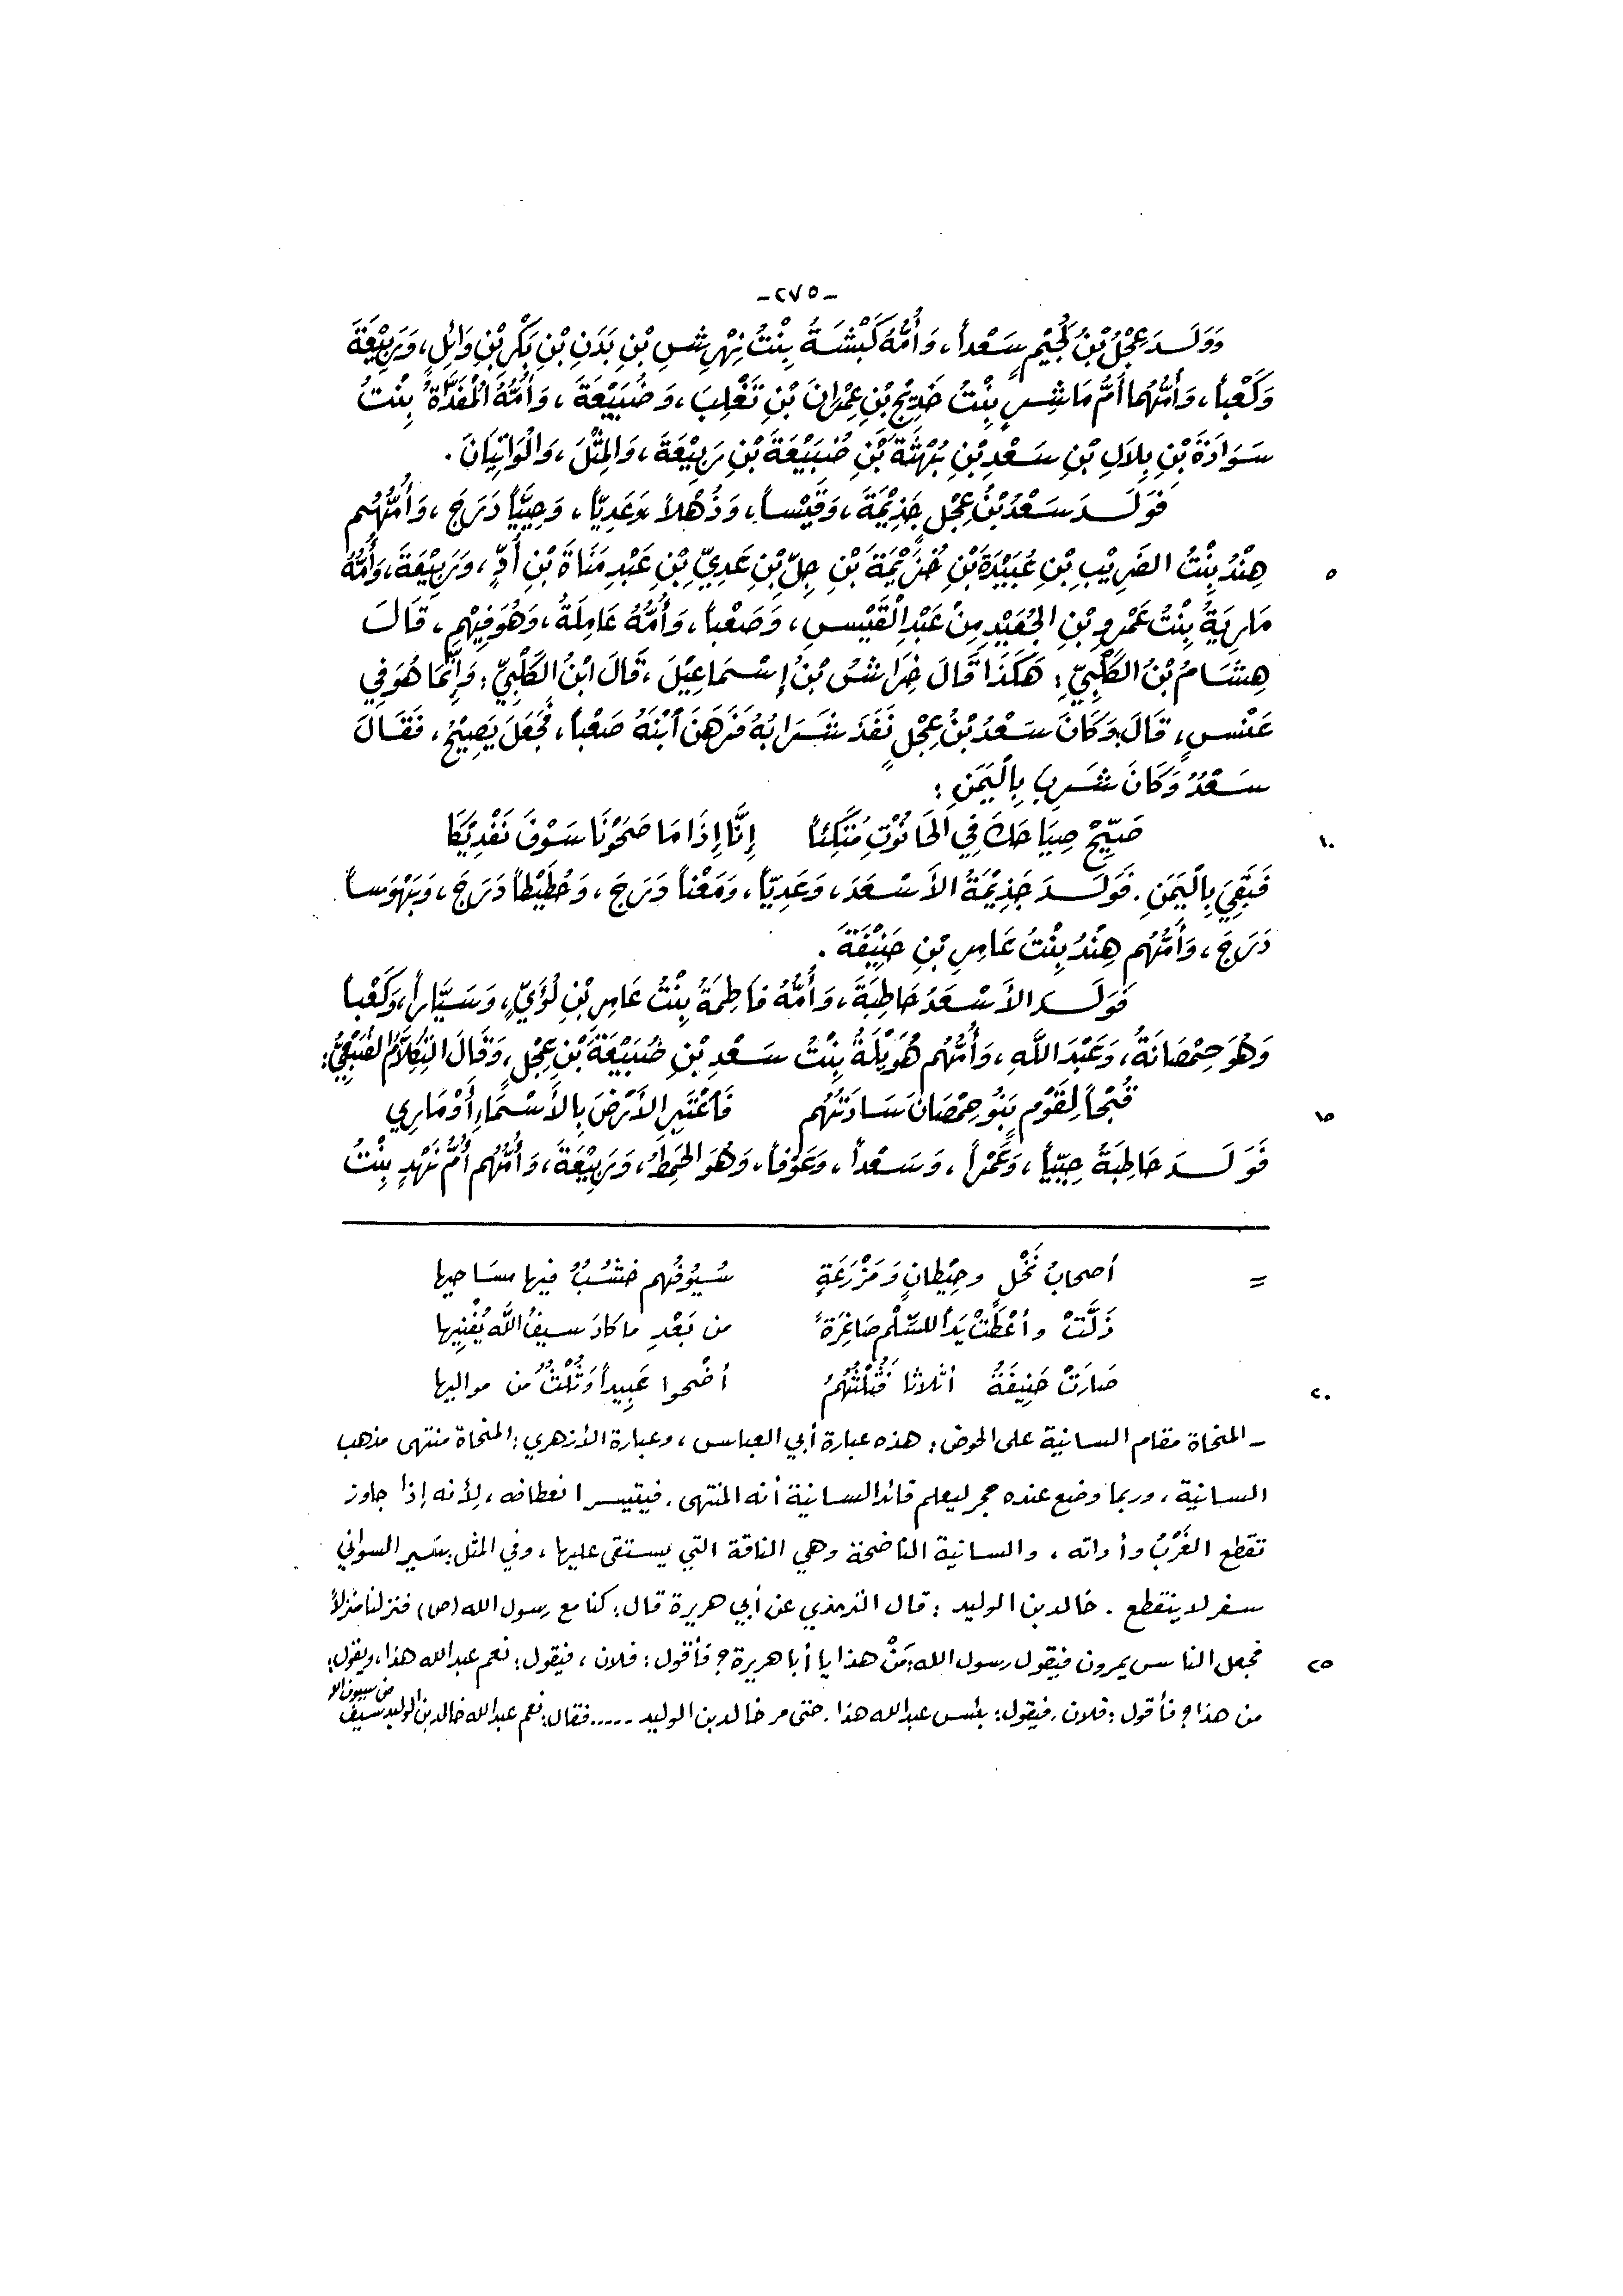 -٢٧٥-
وَوَلَدَ عِجْلُ بْنُ لُجَيْمٍ سَعْداً، وَأُمُّهُ كَبْشَةُ بِنْتُ نِهْرِشِ بْنِ بَدَنِ بْنِ بَكْرِ بْنِ وَائِلٍ، وَرَبِيْعَةَ
وَكَعْباً، وَأُمُّهُما أُمُّ مَاشِسٍ بِنْتُ خَدِيْجِ بْنِ عِمْرَانَ بْنِ تَغْلِبَ، وَضُبَيْعَةَ، وَأُمُّهُ الْمُفَدَّاةُ بِنْتُ
سَوَادَةَ بْنِ بِلَالِ بْنِ سَعْدِ بْنِ بُهْثَةَ بْنِ ضُبَيْعَةَ بْنِ رَبِيْعَةَ، وَالمِثْلَ، وَالْوَاتِيَانَ.
فَوَلَدَ سَعْدُ بْنُ عِجْلٍ جَذِيْمَةَ، وَقَيْساً، وَذُهْلاً وَعَدِيّاً، وَحِبِيّاً دَرَجَ، وَأُمُّهُم
هِنْدُ بِنْتُ الضَرِيْبِ بْنِ عُبَيْدَةَ بْنِ خُزَيْمَةَ بْنِ جِلِّ بْنِ عَدِيِّ بْنِ عَبْدِ مَنَاةَ بْنِ أُدٍّ، وَرَبِيْعَةَ، وَأُمُّهُ
٥
مَارِيَةُ بِنْتُ عَمْرِو بْنِ الجُعَيْدِ مِنْ عَبْدِ الْقَيْسِ، وَصَعْباً، وَأُمُّهُ عَامِلَةُ، وَهُوَ فِيْهِم، قَالَ
هِشَامُ بْنُ الكَلْبِيِّ: هَكَذَا قَالَ خِرَاشُ بْنُ إِسْمَاعِيْلَ، قَالَ ابْنُ الكَلْبِيِّ: وَإِنَّمَا هُوَ فِي
عَنْسٍ، قَالَ: وَكَانَ سَعْدُ بْنُ عِجْلٍ نَفَدَ شَرَابُهُ فَرَهَنَ ابْنَهُ صَعْباً، فَجَعَلَ يَصِيْحُ، فَقَالَ
سَعْدٌ وَكَانَ شَرِبَ بِالْيَمَنِ:
صَيِّحْ صِيَاحَكَ فِي الحَانُوْتِ مُتَّكِئاً إِنَّا إِذَا مَا صَحَوْنَا سَوْفَ نَفْدِيْكَا
١٠
فَبَقِيَ بِالْيَمَنِ. فَوَلَدَ جَذِيْمَةُ الأَسْعَدَ، وَعَدِيّاً، وَمَعْناً دَرَجَ، وَحُطَيْطاً دَرَجَ، وَبَهْوَساً
دَرَجَ، وَأُمُّهُم هِنْدُ بِنْتُ عَامِرِ بْنِ حَنِيْفَةَ.
فَوَلَدَ الأَسْعَدُ حَاطِبَةَ، وَأُمُّهُ فَاطِمَةُ بِنْتُ عَامِرِ بْنِ لُؤَيٍّ، وَسَيَّاراً، وَكَعْباً
وَهُوَ حِمْصَانَةُ، وَعَبْدَ اللَّهِ، وَأُمُّهُم هُوَيْلَةُ بِنْتُ سَعْدِ بْنِ ضُبَيْعَةَ بْنِ عِجْلٍ، وَقَالَ التِّكِلَّامُ الضُبَيْعِيُّ:
قُبْحاً لِقَوْمٍ بَنُو حِمْصَانَ سَادَتُهُم فَاعْتَبِرِ الأَرْضَ بِالأَسْمَاءِ أَوْ مَارِي
١٥
فَوَلَدَ حَاطِبَةُ حِبِيّاً، وَعَمْراً، وَسَعْداً، وَعَوْفاً، وَهُوَ الخَمِطُ، وَرَبِيْعَةَ، وَأُمُّهُم أُمُّ نَهْدٍ بِنْتُ
= أصحابُ نَخْلٍ وحِيْطانٍ وَمَزْرَعَةٍ سُيُوفُهم خشُبٌ فيها مسَاحيها
ذَلَّتْ وأعْطَتْ يَداً للسّلْم صَاغِرَةً من بَعْدِ ما كادَ سيفُ اللَّه يُفْنِيها
صَارَتْ حَنِيفَةُ أثلاثا فَثُلْثُهُمُ أضْحوا عَبِيداً وَثُلْثٌ من مواليها
٢٠
- المنحاة مقام السانية على الحوض: هذه عبارة أبي العباس، وعبارة الأزهري: المنحاة منتهى مذهب
السانية، وربما وضع عنده حجر ليعلم قائد السانية أنه المنتهى، فيتيسر انعطافه، لأنه إذا جاوز
تقطع الغَرْبُ وأداته، والسانية الناضحة وهي الناقة التي يستقى عليها، وفي المثل بسَير السواني
سفر لا ينقطع. خالد بن الوليد: قال الترمذي عن أبي هريرة قال: كنا مع رسول الله (ص) فنزلنا منزلاً
فجعل الناس يمرون فيقول رسول الله: مَنْ هذا يا أبا هريرة؟ فأقول: فلان، فيقول: نعم عبد الله هذا، ويقول:
٢٥
من هذا؟ فأقول: فلان، فيقول: بئس عبد الله هذا، حتى مر خالد بن الوليد ..... فقال: نعم عبد الله خالد بن الوليد سيف من سيوف الله